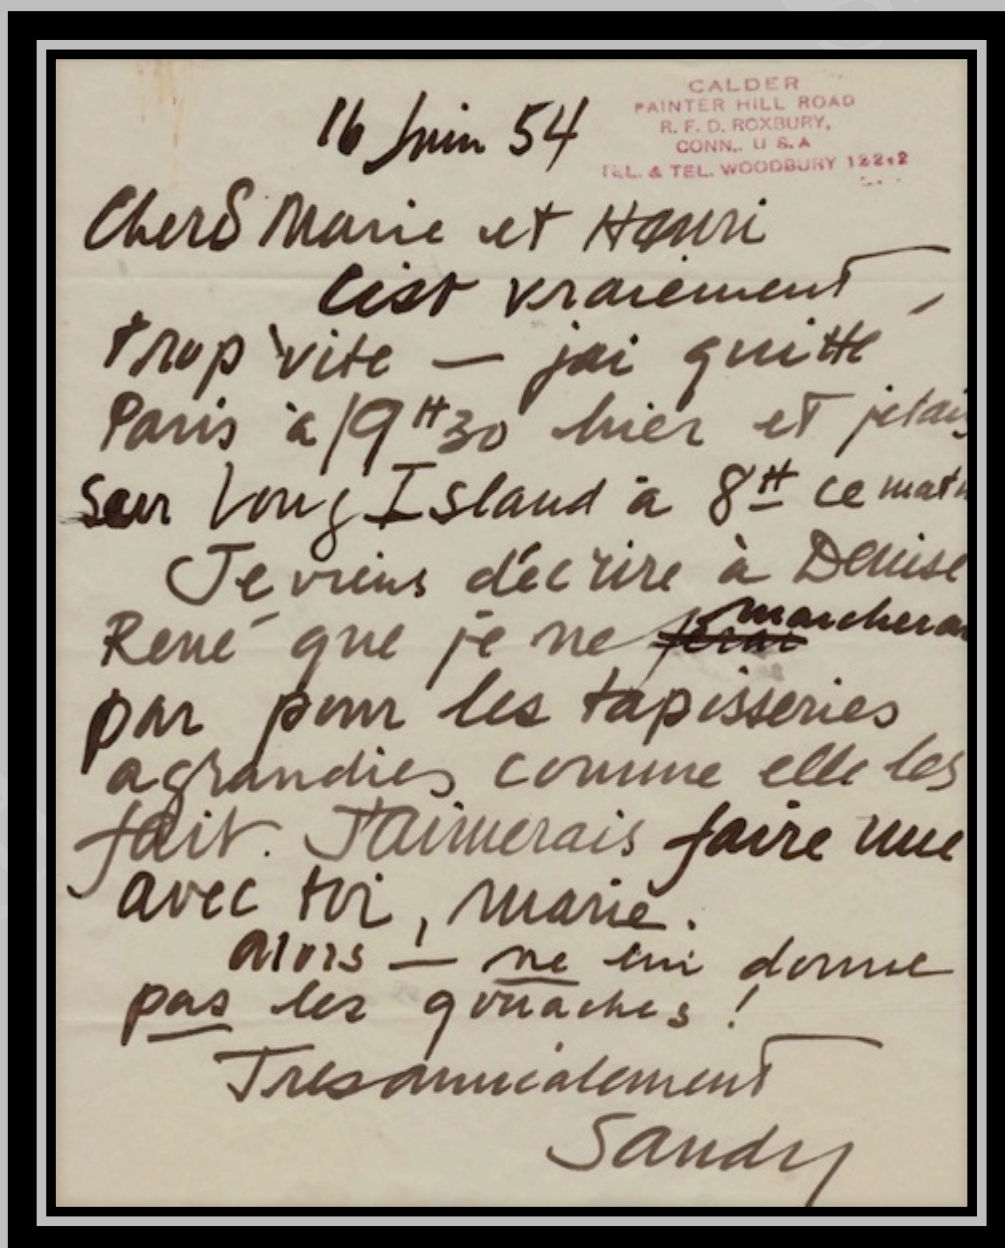 16 Juin 54
CALDER
PAINTER HILL ROAD
R. F. D. ROXBURY,
CONN,. U S. A
TEL. & TEL. WOODBURY 122-2
Chers Marie et Henri
C'est vraiement
trop vite — j'ai quitté
Paris à 19 H 30 hier et j'etais
sur Long Island à 8 H ce matin
Je viens d'écrire à Denise
René que je ne marcherai
par pour les tapisseries
agrandies comme elle les
fait. J'aimerais faire une
avec toi, Marie.
alors — ne lui donne
pas les gouaches !
Tres amicalement
Sandy